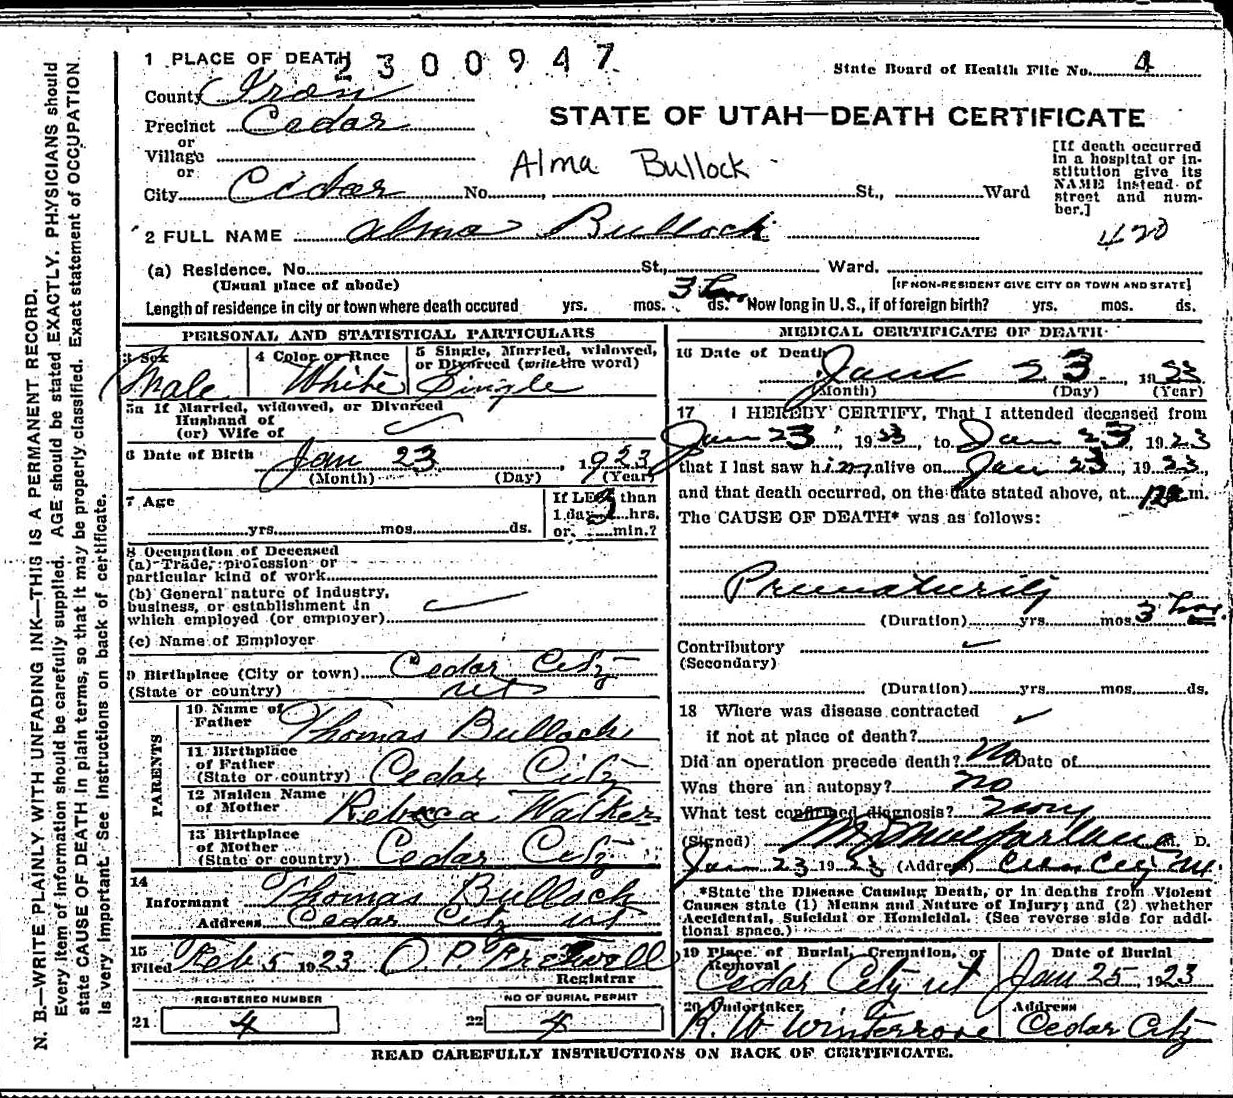 1 PLACE OF DEATH 2300947
State Board of Health File No. 4
County Iron
STATE OF UTAH—DEATH CERTIFICATE
Precinct Cedar
or
Village
or
City Cedar No. St., Ward
Alma Bullock
[If death occurred
in a hospital or in-
stitution give its
NAME instead of
street and num-
ber.]
420
2 FULL NAME Alma Bullock
(a) Residence. No. St., Ward.
(Usual place of abode) [IF NON-RESIDENT GIVE CITY OR TOWN AND STATE]
Length of residence in city or town where death occured yrs. mos. 3 hrs ds. How long in U.S., if of foreign birth? yrs. mos. ds.
PERSONAL AND STATISTICAL PARTICULARS
3 Sex 4 Color or Race 5 Single, Married, widowed,
or Divorced (write the word)
Male White Single
5a If Married, widowed, or Divorced
Husband of
(or) Wife of
6 Date of Birth Jan 23, 1923
(Month) (Day) (Year)
7 Age If LESS than
1 day 3 hrs.
yrs. mos. ds. or min.?
8 Occupation of Deceased
(a) Trade, profession or
particular kind of work
(b) General nature of industry,
business, or establishment in
which employed (or employer)
(c) Name of Employer
9 Birthplace (City or town) Cedar City
(State or country) Ut
PARENTS
10 Name of
Father Thomas Bullock
11 Birthplace
of Father
(State or country) Cedar City
12 Maiden Name
of Mother Rebecca Walker
13 Birthplace
of Mother
(State or country) Cedar City
14
Informant Thomas Bullock
Address Cedar City Ut
15
Filed Feb 5 1923 O. P. Fretwell
Registrar
REGISTERED NUMBER NO OF BURIAL PERMIT
21 4 22 4
MEDICAL CERTIFICATE OF DEATH
16 Date of Death
23, 1923
(Month) (Day) (Year)
17 I HEREBY CERTIFY, That I attended deceased from
Jan 23, 1923, to Jan 23, 1923
that I last saw him alive on Jan 23, 1923,
and that death occurred, on the date stated above, at m.
The CAUSE OF DEATH* was as follows:
Prematurity
(Duration) yrs. mos. 3 hrs.
Contributory
(Secondary)
(Duration) yrs. mos. ds.
18 Where was disease contracted
if not at place of death?
Did an operation precede death? No Date of
Was there an autopsy? no
What test confirmed diagnosis?
(Signed) M. D.
Jan 23 1923 (Address) City
*State the Disease Causing Death, or in deaths from Violent
Causes state (1) Means and Nature of Injury; and (2) whether
Accidental, Suicidal or Homicidal. (See reverse side for addi-
tional space.)
19 Place of Burial, Cremation, or Date of Burial
Removal
Cedar City Ut Jan 25, 1923
20 Undertaker Address
Cedar City
READ CAREFULLY INSTRUCTIONS ON BACK OF CERTIFICATE.
N. B.—WRITE PLAINLY WITH UNFADING INK—THIS IS A PERMANENT RECORD.
Every item of information should be carefully supplied. AGE should be stated EXACTLY. PHYSICIANS should
state CAUSE OF DEATH in plain terms, so that it may be properly classified. Exact statement of OCCUPATION
is very important. See instructions on back of certificate.